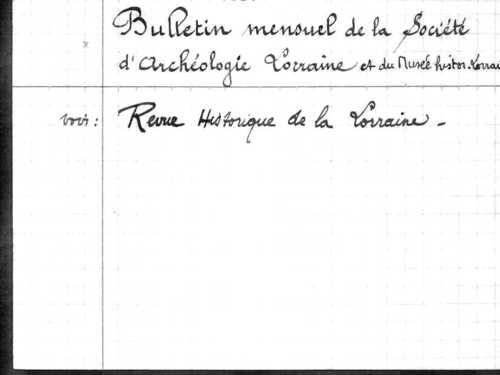 Bulletin mensuel de la Société
d'Archéologie Lorraine et du Musée histor. Lorrai
voir : Revue Historique de la Lorraine -